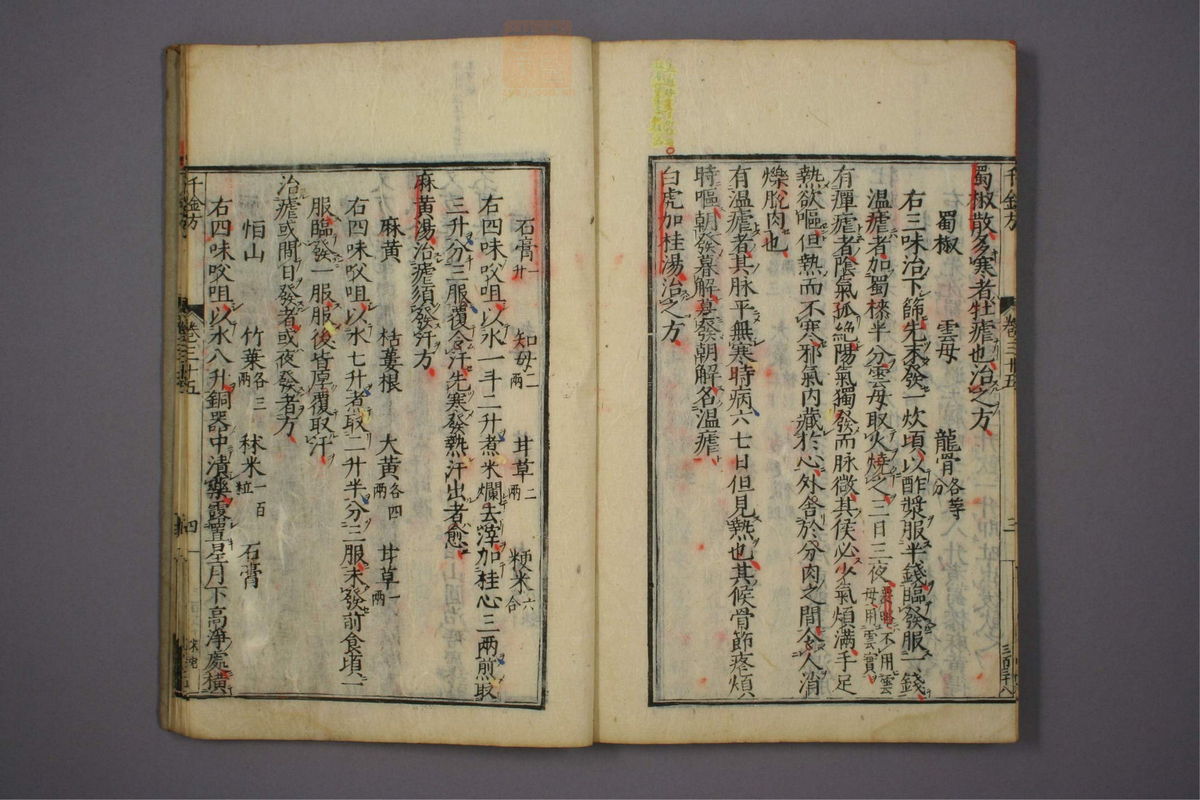 蜀椒散多寒者牡瘧也治之方
蜀椒 雲母 龍骨各等分
右三味治下篩先未發一炊頃以酢漿服半錢臨發服一錢
溫瘧者加蜀椒半分雲母取火燒之三日三夜要略不用雲母用雲實
有癉瘧者陰氣孤絕陽氣獨發而脉微其候必少氣煩滿手足
熱欲嘔但熱而不寒邪氣內藏於心外舍於分肉之間令人消
爍脫肉也
有溫瘧者其脉平無寒時病六七日但見熱也其候骨節疼煩
時嘔朝發暮解暮發朝解名溫瘧
白虎加桂湯治之方
千金方 卷三十五 三
石膏一斤 知母二兩 甘草二兩 粳米六合
右四味㕮咀以水一斗二升煮米爛去滓加桂心三兩煎取
三升分三服覆令汗先寒發熱汗出者愈
麻黃湯治瘧須發汗方
麻黃 栝蔞根 大黃各四兩 甘草一兩
右四味㕮咀以水七升煮取二升半分三服未發前食頃一
服臨發一服服後皆厚覆取汗
治瘧或間日發者或夜發者方
恒山 竹葉各三兩 秫米一百粒 石膏
右四味㕮咀以水八升銅器中漬藥露置星月下高淨處橫
千金方 卷三十五 四